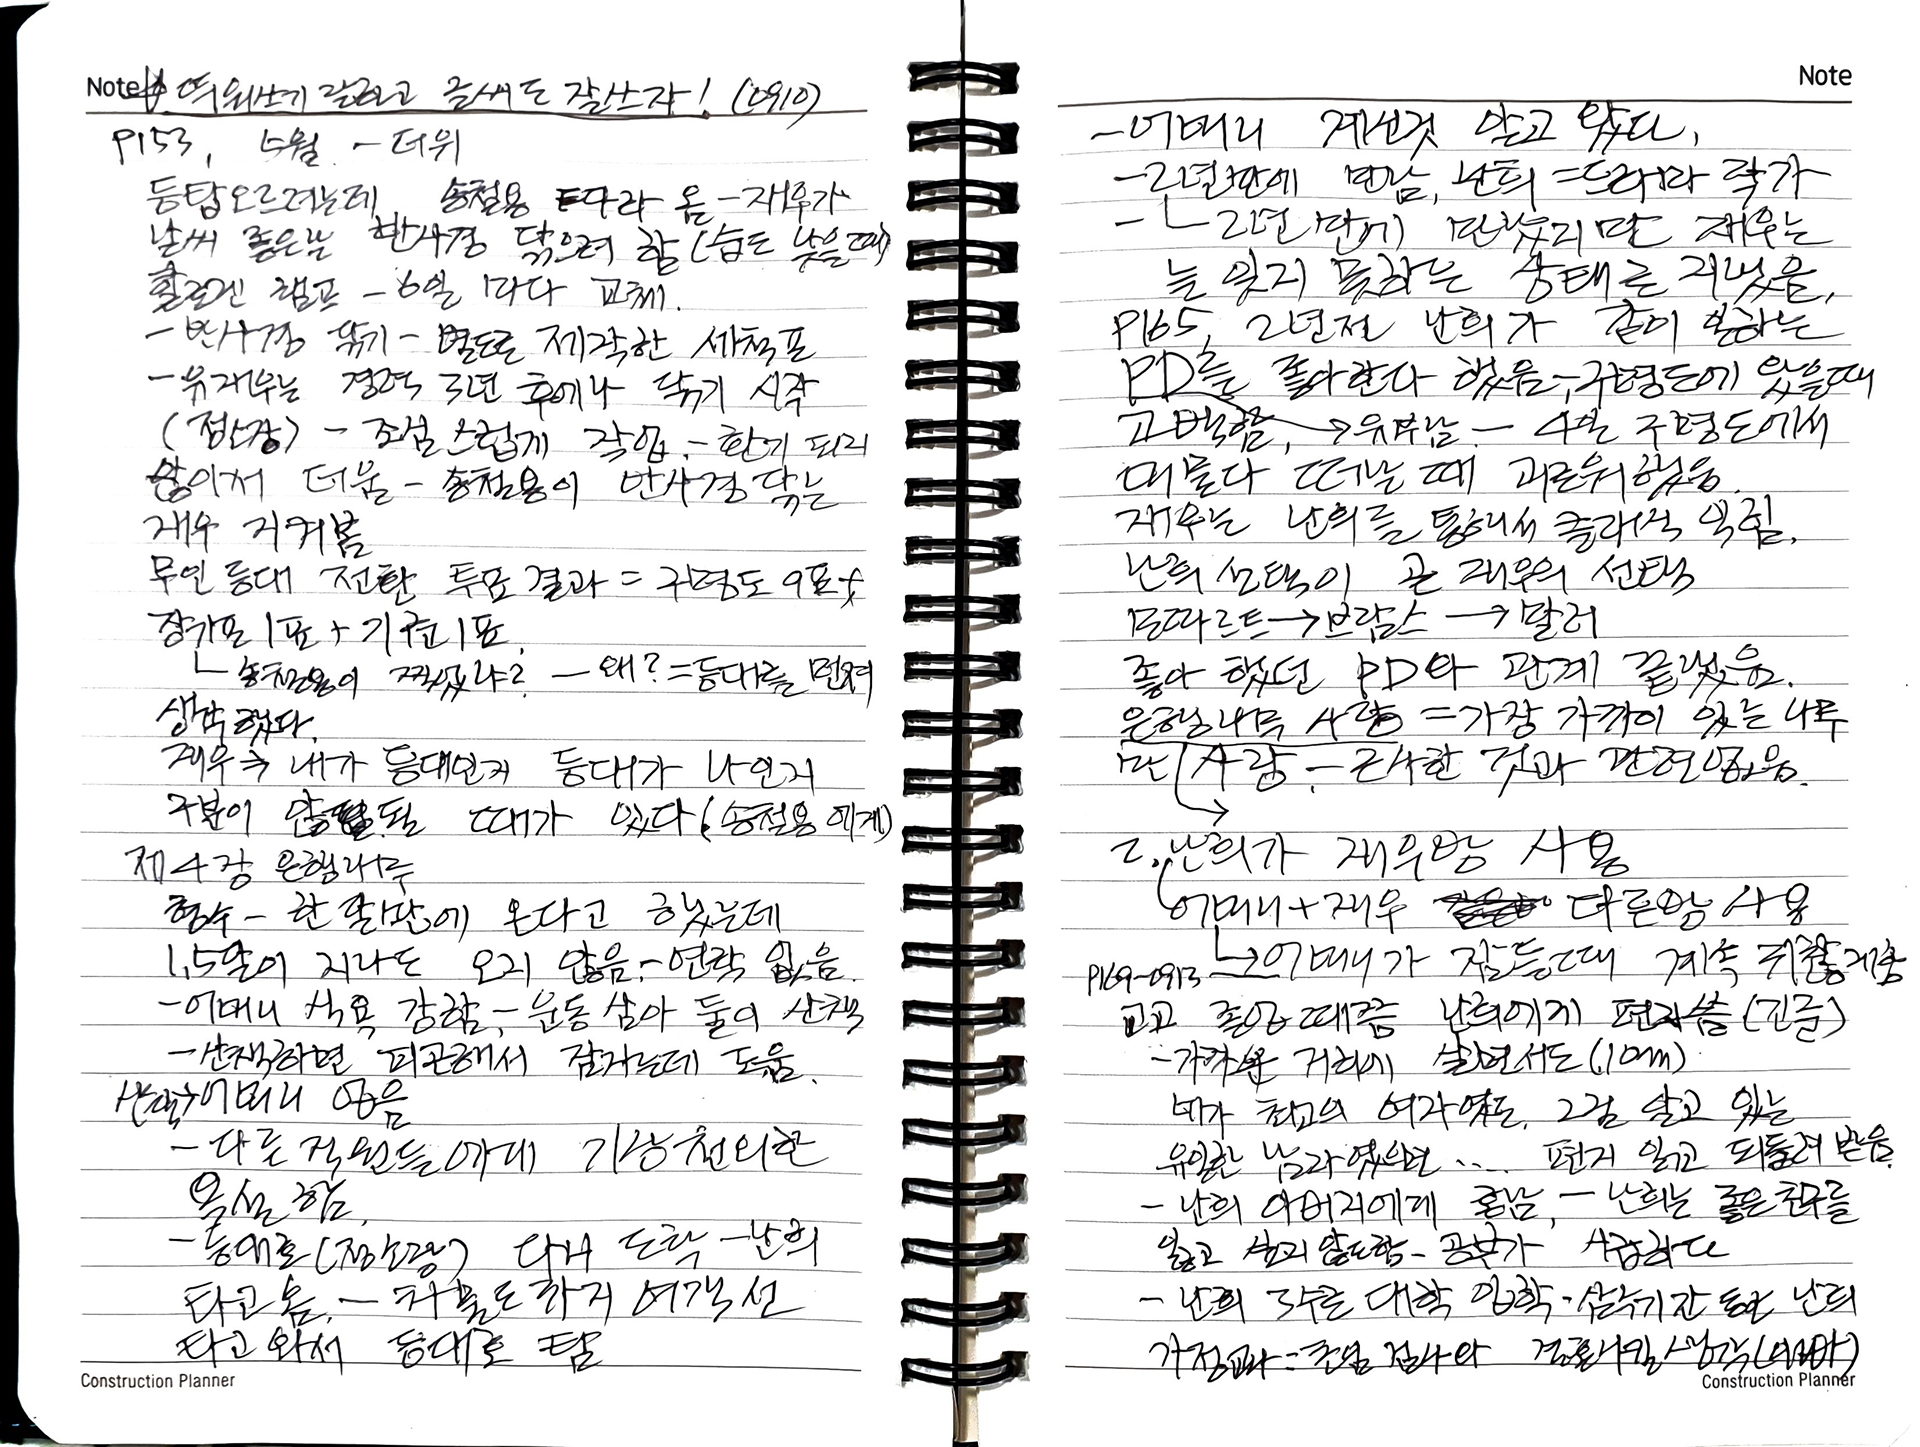 Note 띄워쓰기 잘하고 글씨도 잘쓰자! (0910)
P153, 5월 - 더위
등탑오르려는데 송철용 따라 옴 - 재우가
날씨 좋은날 반사경 닦으려 함 (습도 낮을때)
할로겐 램프 - 6일 마다 교체.
- 반사경 닦기 - 별도로 제작한 세척포
- 유재우는 경력 3년 후에나 닦기 시작
(정소장) - 조심스럽게 작업 - 환기 되지
않아서 더움 - 송철용이 반사경 닦는
재우 지켜봄
무인등대 전환 투표결과 = 구명도 9표 +
장가포 1표 + 기권 1표.
└ 송철용이 찍었나? - 왜? = 등대를 먼저
생각했다.
재우 내가 등대인지 등대가 나인지
구분이 안될 때가 있다 (송철용에게)
제4장 은행나무
형수 - 한달만에 온다고 했는데
1.5달이 지나도 오지 않음 - 연락 없음.
- 어머니 식욕 강함 - 운동 삼아 둘이 산책
- 산책하면 피곤해서 잠자는데 도움.
어머니 없음
- 다른 직원들에게 기상천외한
욕설 함.
- 등대호(정소장) 다시 도착 - 난희
타고옴. - 처음도 하지 여객선
타고 와서 등대호 탐
Construction Planner
Note
- 어머니 계신것 알고 왔다.
- 2년만에 만남, 난희 = 드라마 작가
- └ 2년만에 만났지만 재우는
늘 잊지 못하는 상태로 지냈음.
P165, 2년전 난희가 같이 일하는
PD를 좋아한다 했음 - 구명도에 있을때
고백함. → 유부남 - 4일 구명도에서
머물다 떠날때 괴로워했음.
재우는 난희를 통해서 클래식 익힘.
난희 선택이 곧 재우의 선택
모짜르트 → 브람스 → 말러
좋아했던 PD와 관계 끝냈음.
은행나무 사랑 = 가장 가까이 있는 나무
만 사랑 - 근사한 것과 관련없음.
2. 난희가 재우방 사용
어머니 + 재우 다른방 사용
└→ 어머니가 잠들때 계속
P169-0913
고교 졸업때쯤 난희에게 편지씀 (긴글)
- 가까운 거리에 살면서도 (10m)
네가 최고의 여자였는, 그걸 알고 있는
유일한 남자였으면 .... 편지 읽고 되돌려 받음.
- 난희 아버지에게 혼남, - 난희는 좋은친구를
잃고 싶지 않다함 - 공부가 시급하다
- 난희 3수로 대학 입학 - 삼수기간 동안 난희
가정교사 = 초임 검사와 결혼시킬 생각
Construction Planner